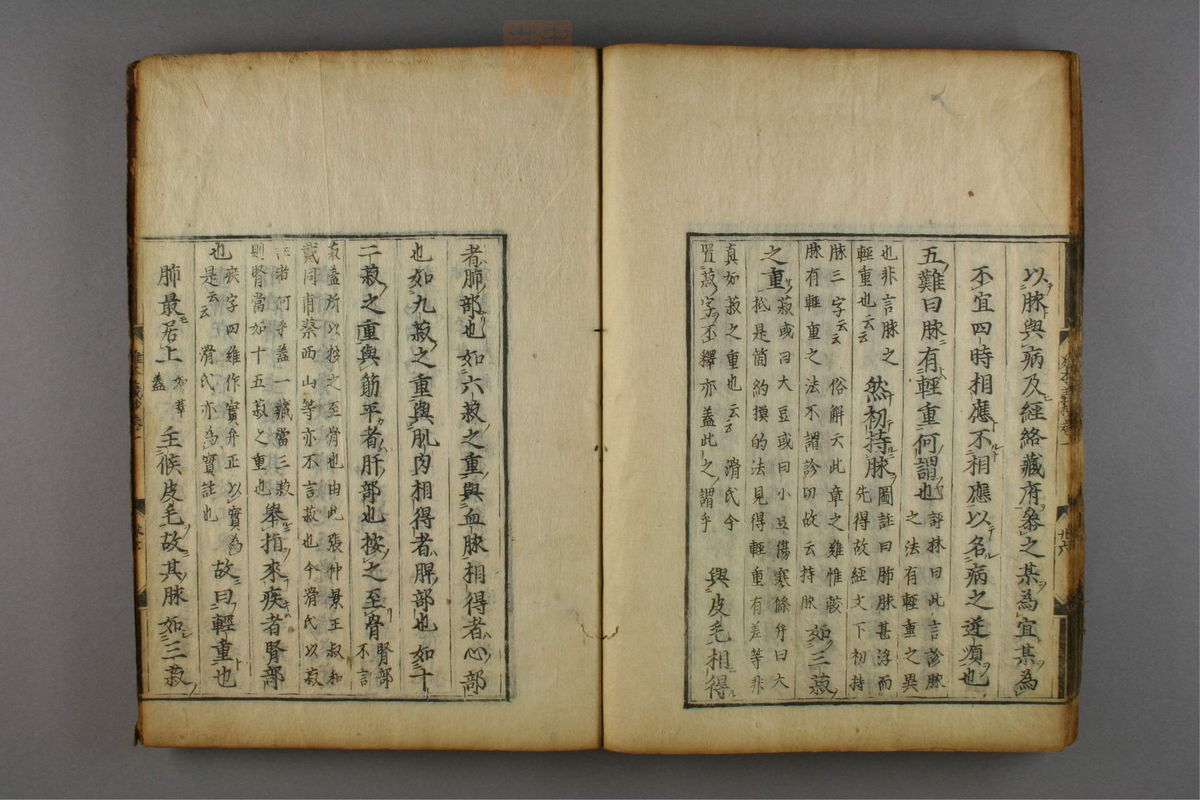 以脉與病及經絡藏府參之某為宜某為
不宜四時相應不相應以名病之逆順也
五難曰脉有輕重何謂也評林曰此言診脉之法有輕重之異
也非言脉之輕重也云云然初持脉圖註曰肺脉甚浮而先得故經文下初持
脉三字云云俗解六此章之難惟菽脉有輕重之法不謂診切故云持脉如三菽
之重菽或曰大豆或曰小豆傷寒條弁曰大秖是簡約摸的法見得輕重有差等非
真如菽之重也云云滑氏今置菽字不釋亦蓋此之謂乎與皮毛相得
者肺部也如六菽之重與血脉相得者心部
也如九菽之重與肌肉相得者脾部也如十
二菽之重與筋平者肝部也按之至骨腎部不言
菽蓋所以按之至骨也由此張仲景王叔和戴同甫蔡西山等亦不言菽也今滑氏以菽
者何乎蓋一藏當三菽則腎當如十五菽之重也舉指來疾者腎部
也疾字四難作實弁正以實為是云云滑氏亦為實註也故曰輕重也
肺最居上主候皮毛故其脉如三菽